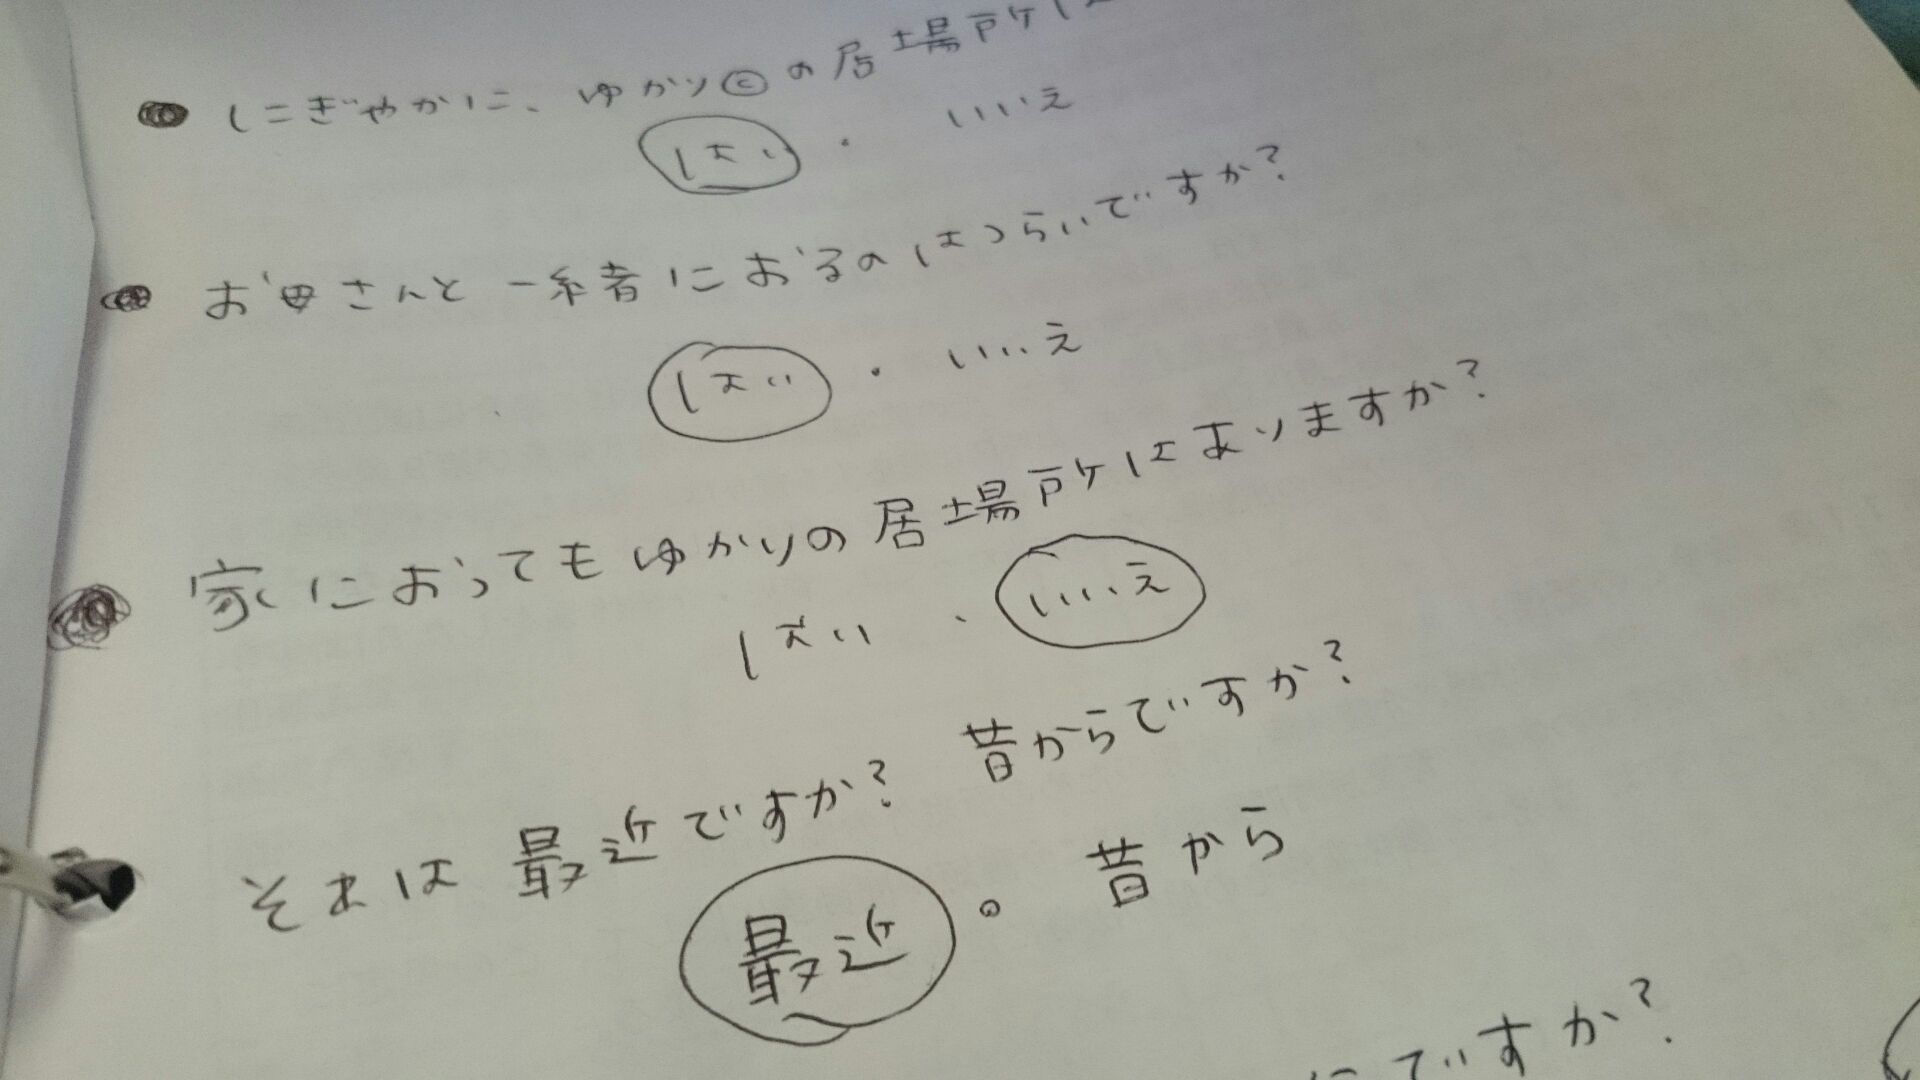 ● にぎやかに、ゆかり©の居場所は
はい ・ いいえ
● お母さんと一緒におるのはつらいですか?
はい ・ いいえ
● 家におってもゆかりの居場所はありますか?
はい ・ いいえ
それは最近ですか? 昔からですか?
最近 。 昔から
ですか?